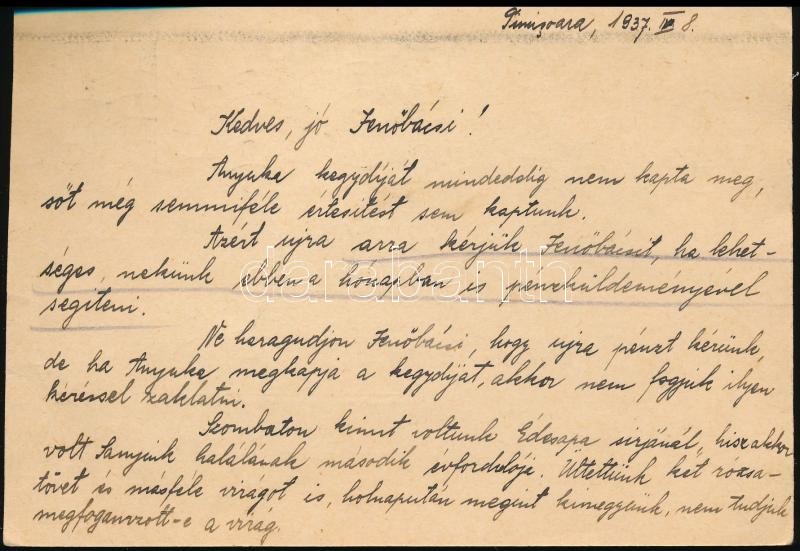 Timişoara, 1937. III 8.
Kedves, jó Jenőbácsi!
Anyuka kegydíját mindeddig nem kapta meg,
sőt még semmiféle értesítést sem kaptunk.
Azért ujra arra kérjük Jenőbácsit, ha lehet-
séges, nekünk ebben a hónapban is pénzküldeményével
segíteni.
Ne haragudjon Jenőbácsi, hogy ujra pénzt kérünk,
de ha Anyuka megkapja a kegydíját, akkor nem fogjuk ilyen
kéréssel zaklatni.
Szombaton kinnt voltunk Édesapa sirjánál, hisz akkor
volt halálának második évfordulója. Ültettünk két rózsa-
tövet és másféle virágot is, holnapután megint kimegyünk, nem tudjuk
megfogamzott-e a virág.
darabanth